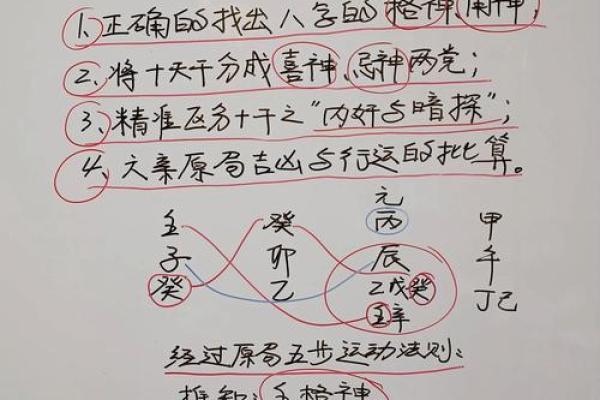 1、正确的找出八字的格神、用神;
2、将十天干分成喜神、忌神两党;
3、精准区分十干之"内奸与暗探";
4、六亲原局吉凶与行运的批算。
元
壬 癸 丙 甲
子 卯 辰 午
癸 乙 乙戊癸 丁己
壬辛
经过原局五步运动法则:
推知: 格神